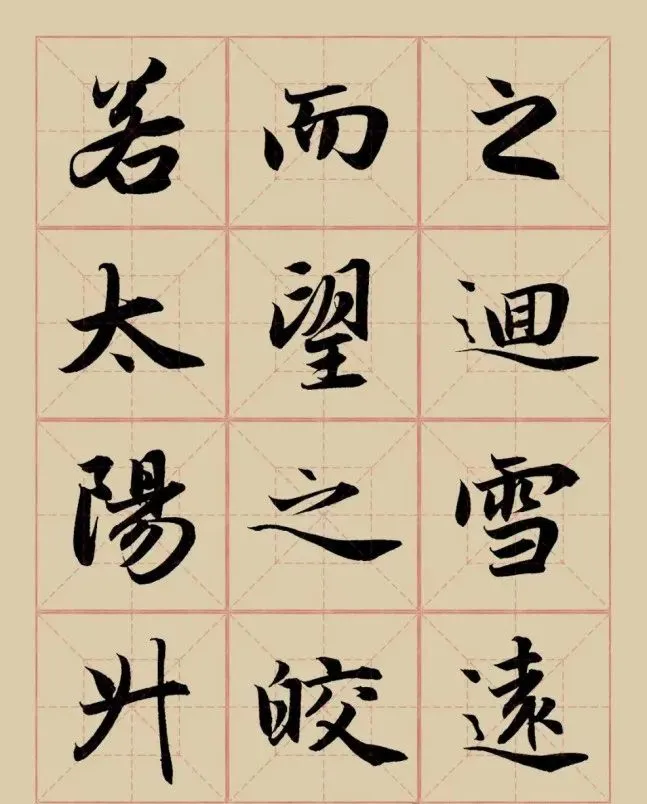 之迴雪遠
而望之皎
若太陽升